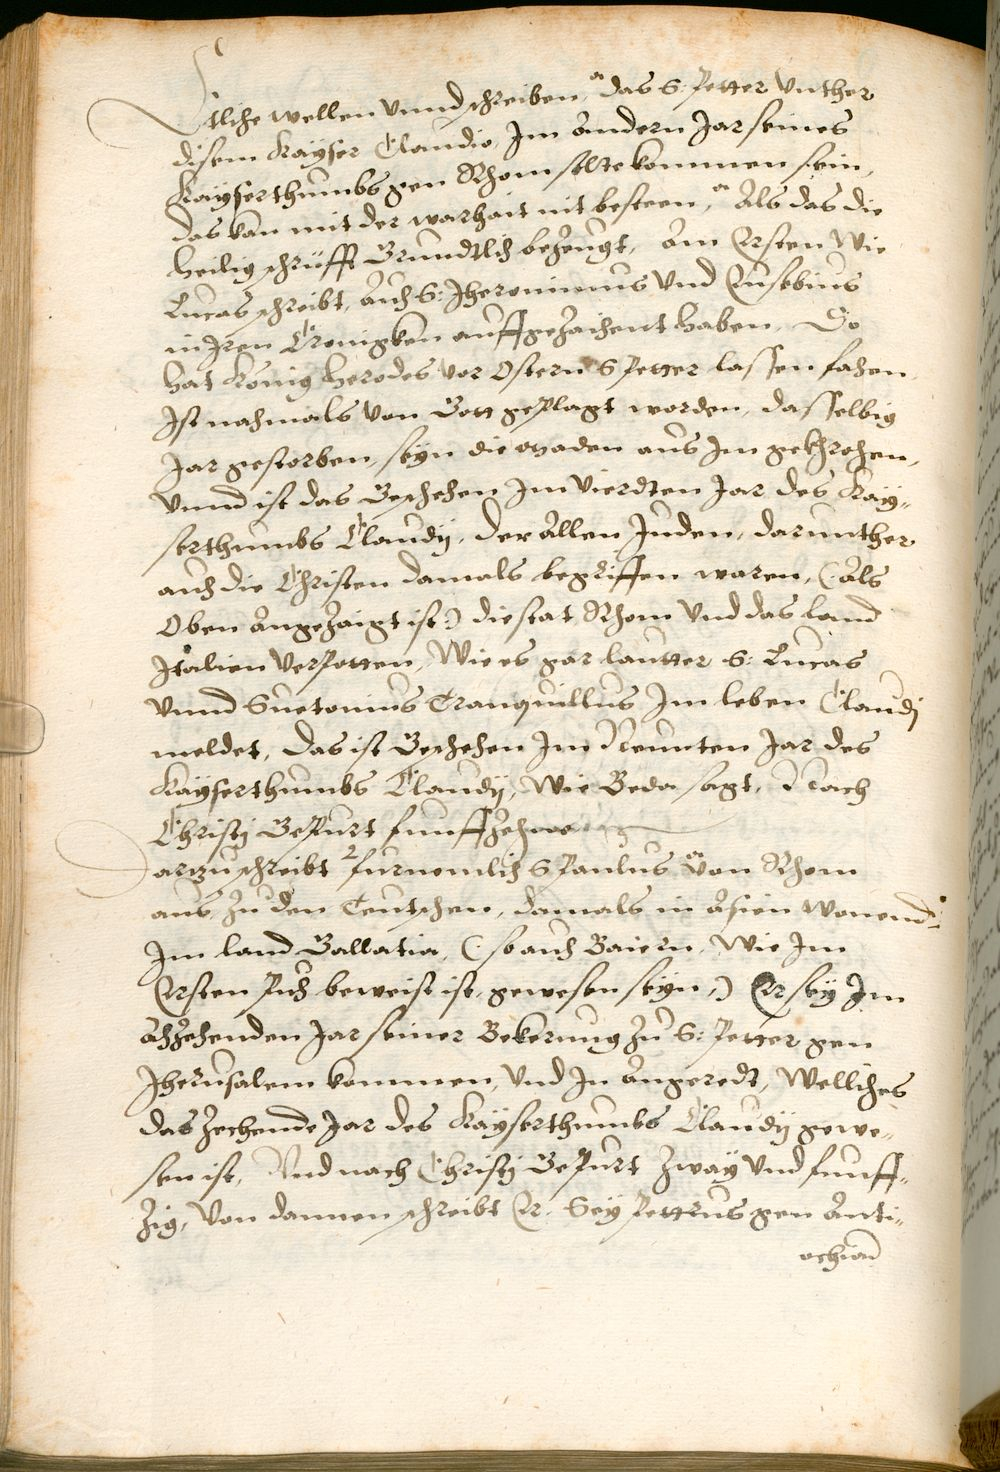 Etliche wellen unnd schreiben, das S: Petter unther
disem Kayser Claudio, Im andern Jar seines
Kayserthumbs gen Rhom solte kommen sein,
das kan mit der warhait nit besteen, Als das die
heilig schrüfft Grundtlich bezeugt, Am Ersten Wie
Lucas schreibt, auch S: Jheronimus Und Eusebius
in Iren Cronigken auffgezaichent haben, Do
hat König Herodes vor Ostern S Petter lassen fahen,
Ist nahmals von Gott geplagt worden, dasselbig
Jar gestorben, seyn die maden aus Im gekhrochen,
Unnd ist das Geschehen Im Vierdten Jar des Kay„
serthumbs Claudij, der Allen Juden, darunther
auch die Christen damals begriffen waren, (: Als
Oben Angezaigt ist:) die stat Rhom Und das land
Italien Verpotten, Wie es gar lautter S: Lucas
Unnd Suetonius Tranquillus Im leben Claudj
meldet, das ist Geschehen Im Neunten Jar des
Kayserthumbs Claudij, Wie Beda sagt, Nach
Christj Gepurt funffzehne
Darzu schreibt furnemlich S Paulus von Rhom
aus, zu den Teutschen, damals in Asien wonend
Im land Gallatia, (: so auch Baiern, Wie Im
Ersten Puch beweist ist, gewesen seyn,) Er sey Im
achzehenden Jar seiner Bekerung zu S: Petter gen
Jherusalem kommen, Und In angeredt, Welliches
das zechende Jar des Kayserthumbs Claudij gewe„
sen ist, Und nach Christj Gepurt zway Und funff„
zig, Von dannen schreibt Er, Sey Pettrus gen Anti„
ochian